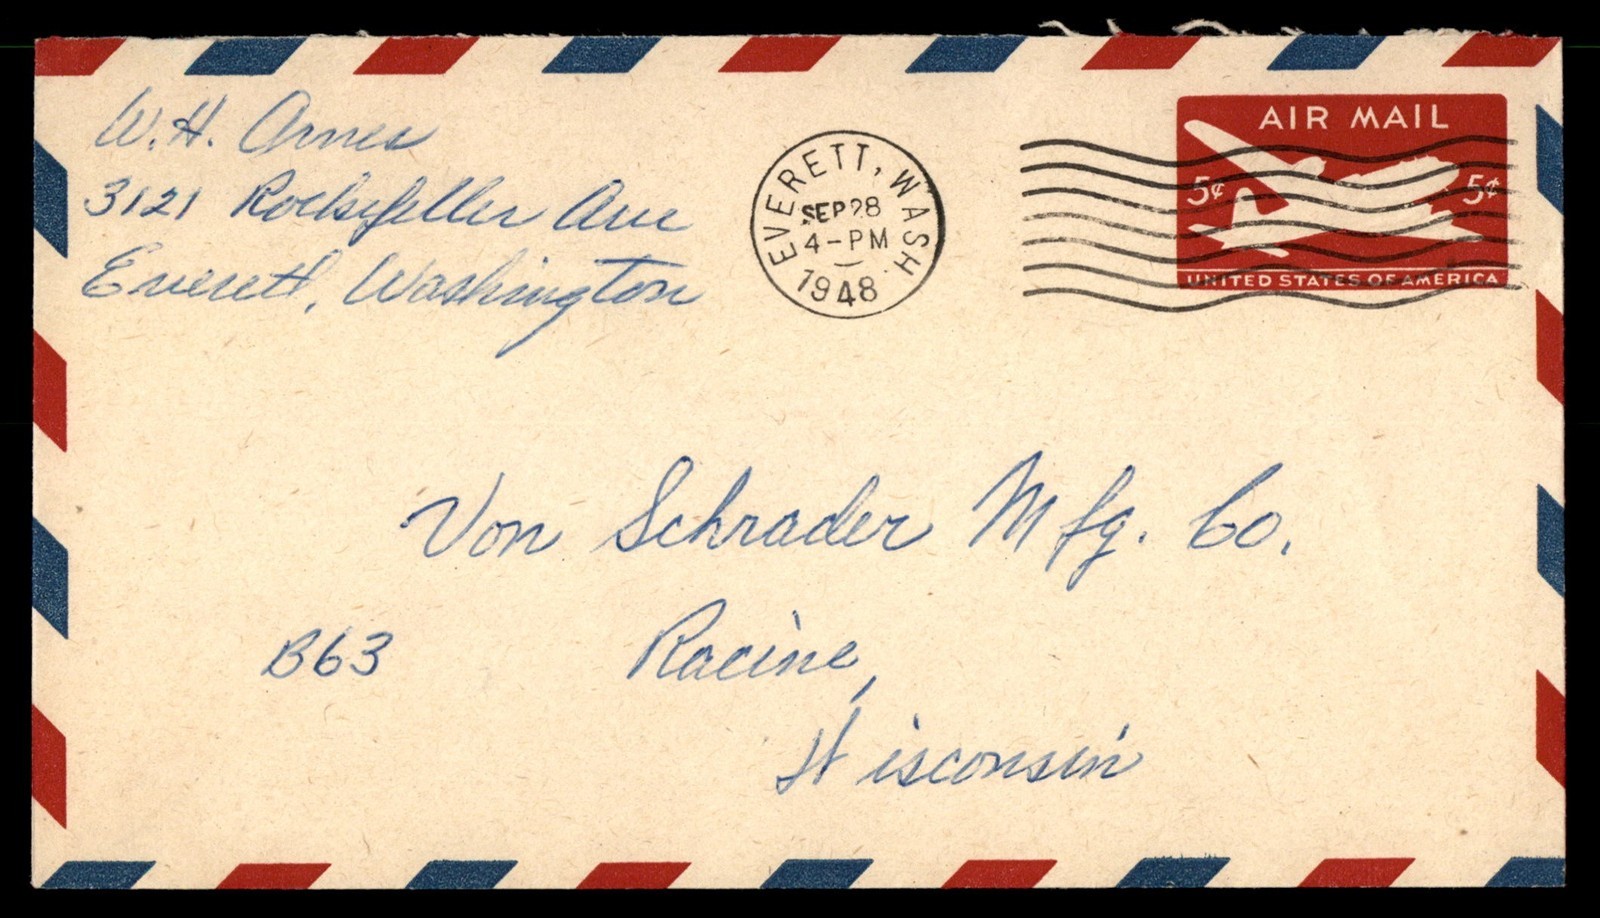 W. H. Ames
3121 Rockefeller Ave
Everett, Washington
EVERETT, WASH
SEP 28
4-PM
1948
AIR MAIL
5¢ 5¢
UNITED STATES OF AMERICA
Von Schrader Mfg. Co.
B63
Racine,
Wisconsin